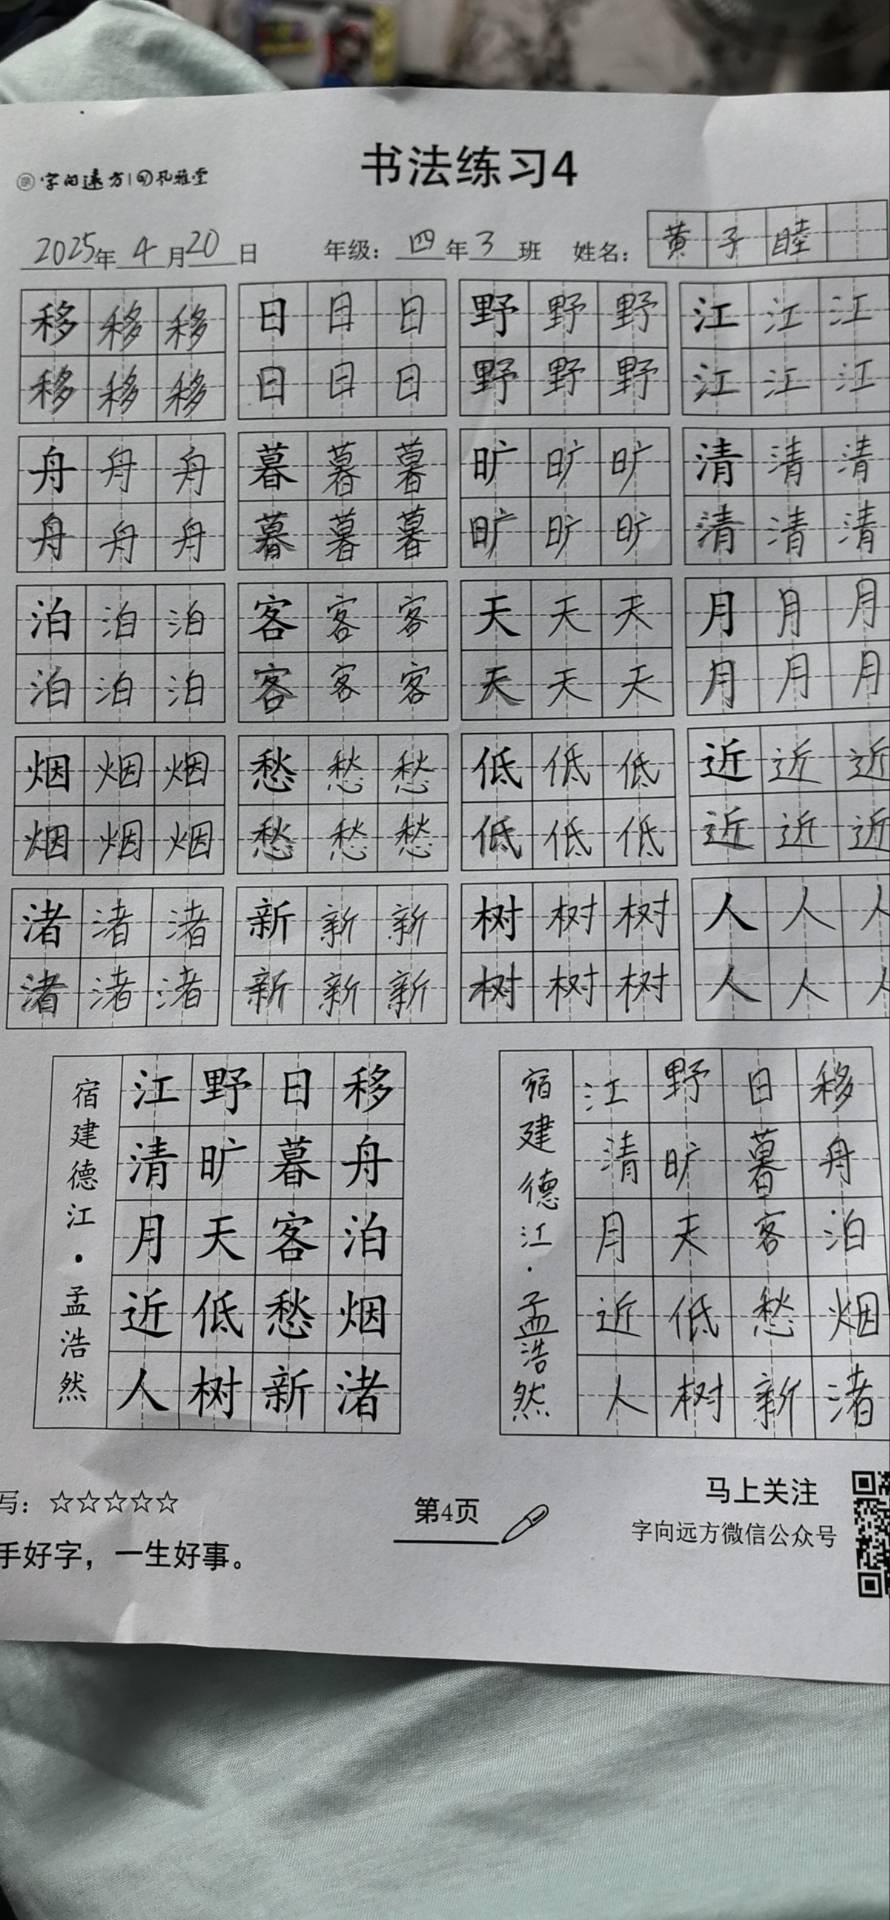 字向远方 孔雅堂
书法练习4
2025年4月20日 年级：四年3班 姓名：黄子睦
移移移 日日日 野野野 江江江
移移移 日日日 野野野 江江江
舟舟舟 暮暮暮 旷旷旷 清清清
舟舟舟 暮暮暮 旷旷旷 清清清
泊泊泊 客客客 天天天 月月月
泊泊泊 客客客 天天天 月月月
烟烟烟 愁愁愁 低低低 近近近
烟烟烟 愁愁愁 低低低 近近近
渚渚渚 新新新 树树树 人人人
渚渚渚 新新新 树树树 人人人
移舟泊烟渚
日暮客愁新
野旷天低树
江清月近人
宿建德江·孟浩然
移舟泊烟渚
日暮客愁新
野旷天低树
江清月近人
宿建德江·孟浩然
写：☆☆☆☆☆
手好字，一生好事。
第4页
马上关注
字向远方微信公众号